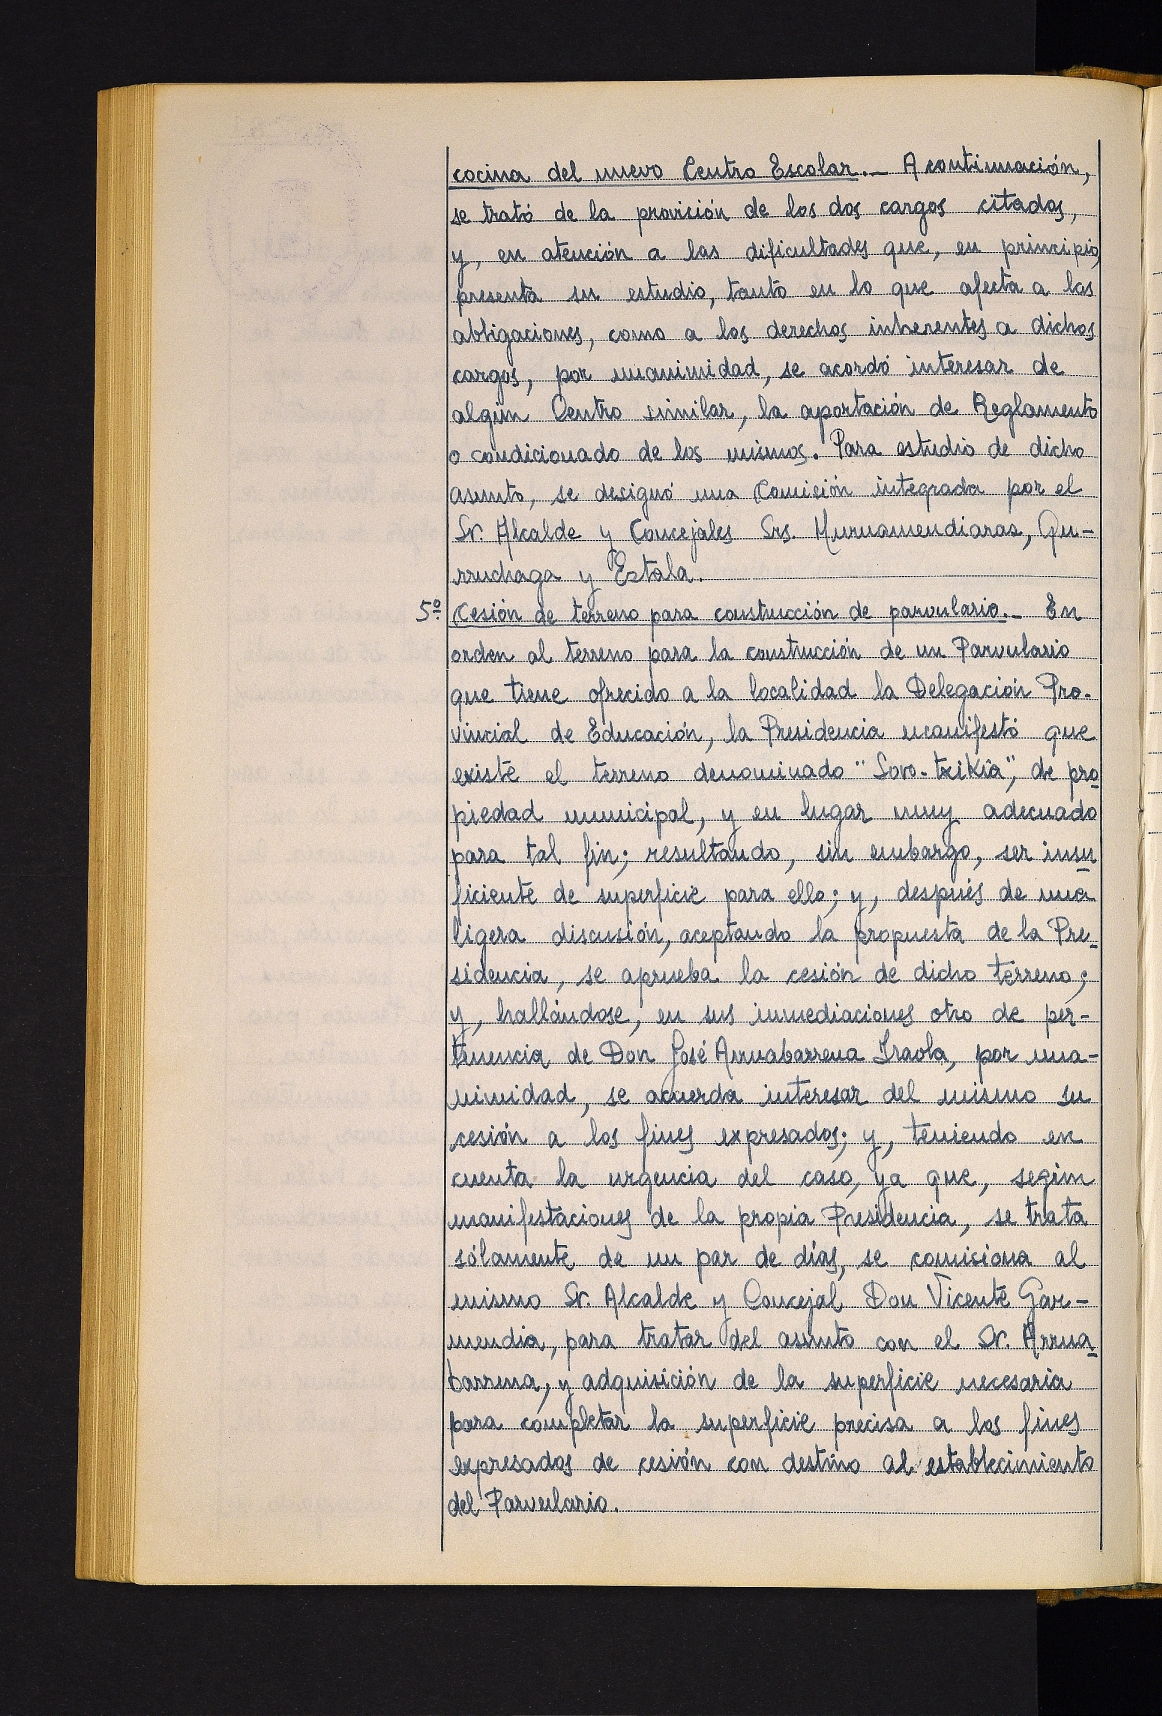 cocina del nuevo Centro Escolar.- A continuación,
se trató de la provisión de los dos cargos citados,
y, en atención a las dificultades que, en principio,
presenta su estudio, tanto en lo que afecta a las
obligaciones, como a los derechos inherentes a dichos
cargos, por unanimidad, se acordó interesar de
algún Centro similar, la aportación de Reglamento
o condicionado de los mismos. Para estudio de dicho
asunto, se designó una Comisión integrada por el
Sr. Alcalde y Concejales Srs. Muruamendiaraz, Gu-
rruchaga y Eztala.
5º Cesión de terreno para construcción de parvulario.- En
orden al terreno para la construcción de un Parvulario
que tiene ofrecido a la localidad la Delegación Pro-
vincial de Educación, la Presidencia manifestó que
existe el terreno denominado "Soro-txikia", de pro-
piedad municipal, y en lugar muy adecuado
para tal fin; resultando, sin embargo, ser insu-
ficiente de superficie para ello; y, después de una
ligera discusión, aceptando la propuesta de la Pre-
sidencia, se aprueba la cesión de dicho terreno;
y, hallándose, en sus inmediaciones otro de per-
tenencia de Don José Arruabarrena Iraola, por una-
nimidad, se acuerda interesar del mismo su
cesión a los fines expresados; y, teniendo en
cuenta la urgencia del caso, ya que, según
manifestaciones de la propia Presidencia, se trata
sólamente de un par de días, se comisiona al
mismo Sr. Alcalde y Concejal Don Vicente Gar-
mendia, para tratar del asunto con el Sr. Arrua-
barrena, y adquisición de la superficie necesaria
para completar la superficie precisa a los fines
expresados de cesión con destino al establecimiento
del Parvulario.